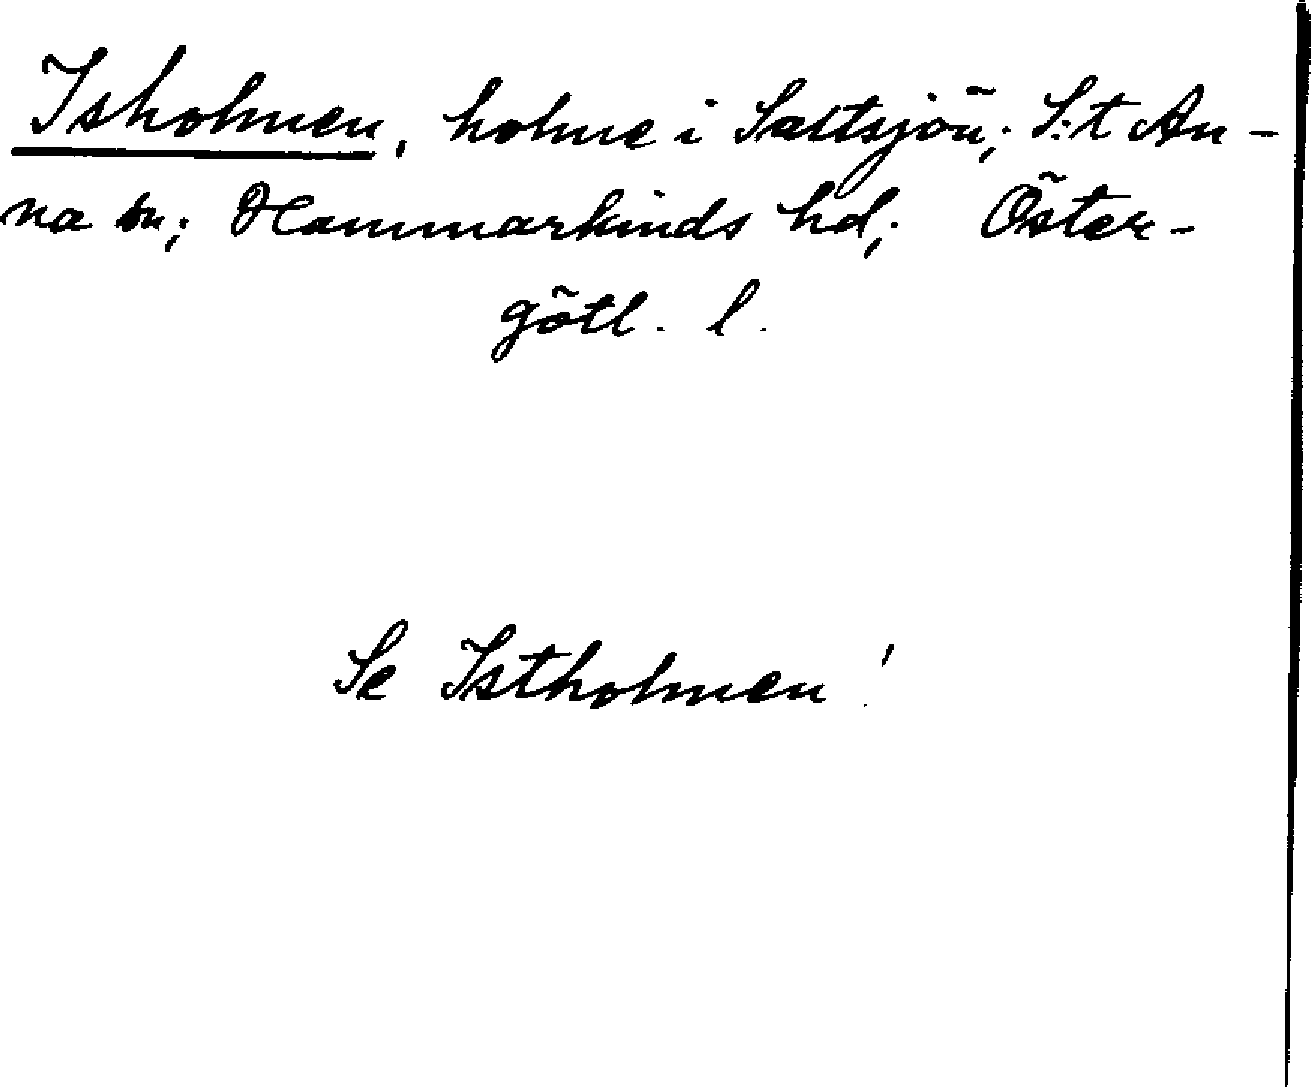 Isholmen, holme i Saltsjön; S:t An-
na sn; Hammarkinds hd; Öster-
götl. l.
Se Istholmen!